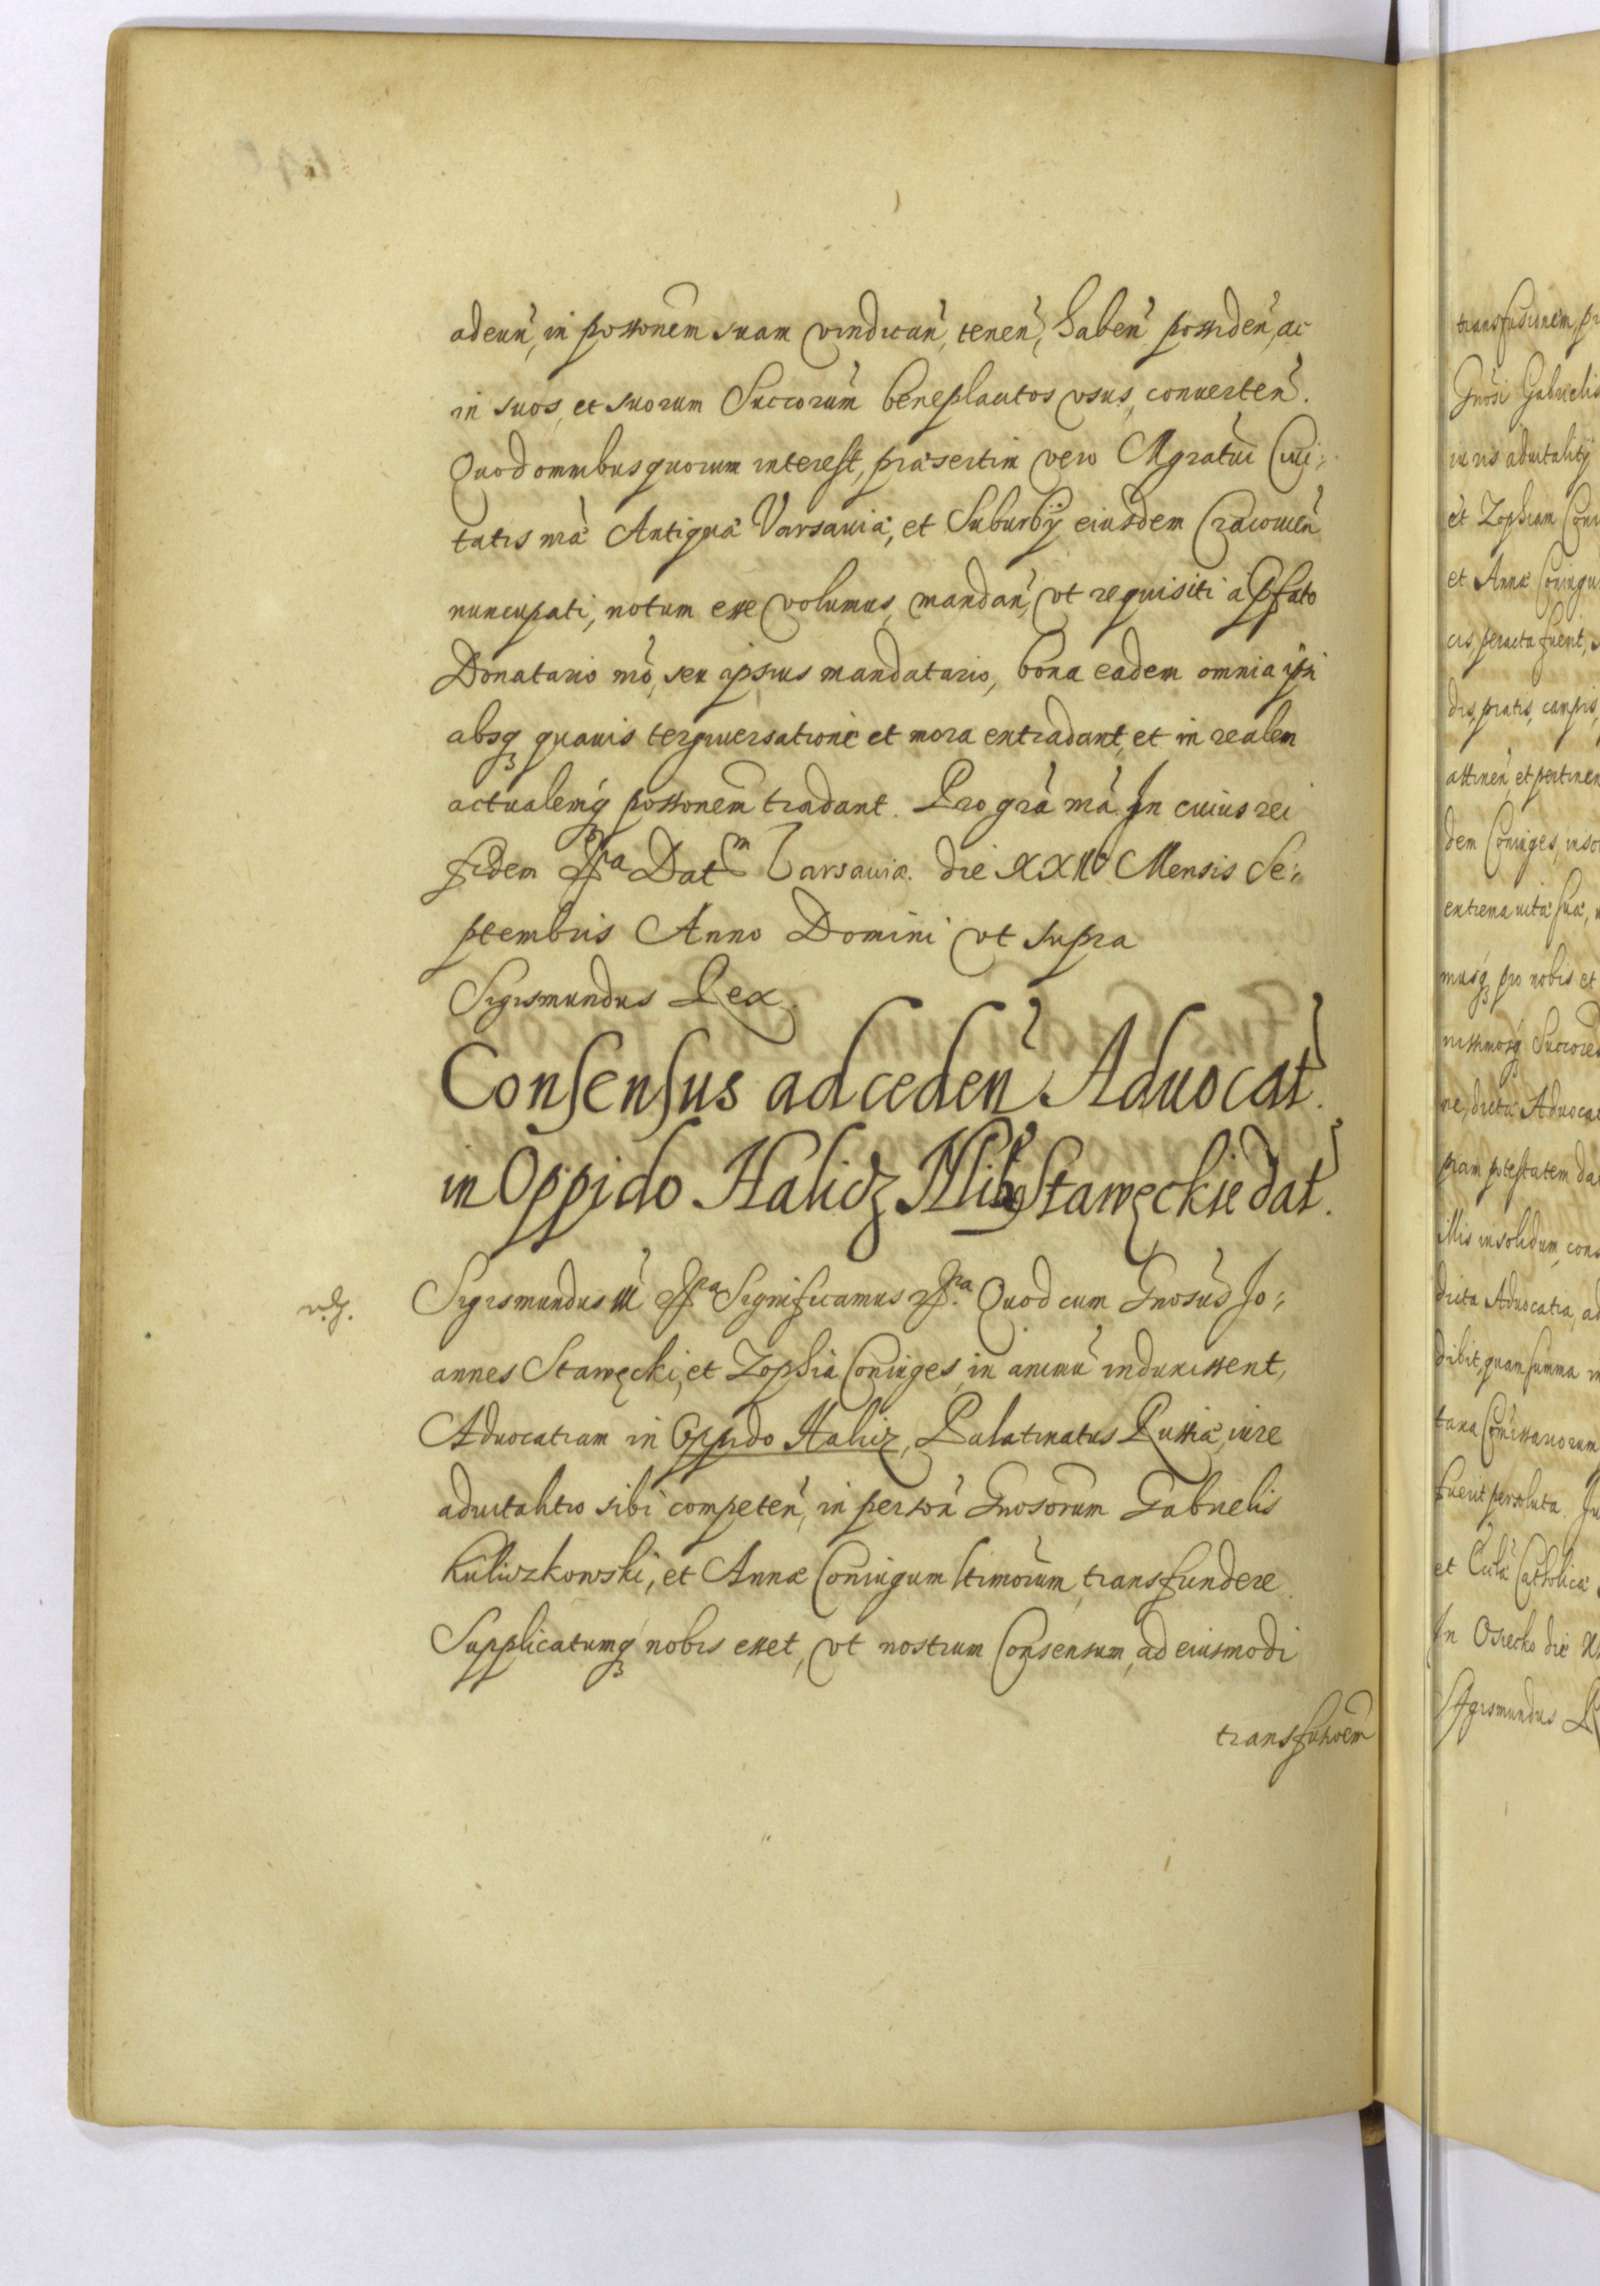 adeun, in possonem suam vindican, tenen, haben possiden, ac
in suos, et suorum Succorum beneplacitos vsus, conuerten.
Quod omnibus quorum interest, præsertim vero Mgratui Ciui:
tatis nræ Antiquæ Varsauiæ, et Suburbij eiusdem Cracouien
nuncupati, notum esse volumus, mandan, vt requisiti a pfato
Donatario nro, seu ipsius mandatario, bona eadem omnia ipsi
absq quauis tergiuersatione et mora extradant, et in realem
actualemq possonem tradant. Pro gra nra. In cuius rei
fidem Dat Varsauiæ. die Mensis Se:
ptembris Anno Domini vt supra
Sigismundus Rex.
Consensus ad ceden Aduocat.
in Oppido Halicz Stawęckie dat.
Sigismundus III Significamus Quod cum Gnosus Jo:
annes Stawęcki, et Zophia Coniuges, in animu induxissent,
Aduocatiam in Oppido Halicz, Palatinatus Russiæ, iure
aduitalitio sibi competen, in person Gnosorum Gabrielis
Kuliczkowski, et Annæ Coniugum ltimorum, transfundere.
Supplicatumq nobis esset, vt nostrum Consensum, ad eiusmodi
transfusioem
transfusionem
Gnosi Gabrielis
iuris aduitalitij
et Zophiam
et Annæ
cis, peracta fuerit,
pratis, campis,
attinen et pertinen
dem Coniuges,
extrema vitæ suæ,
musq pro nobis et
dicta Aduocat
potestatem
illis insolidum,
dicta Aduocatia, ad
quam summa
fuerit persoluta.
et Catholicæ
In Osiecko die
Sigismundus